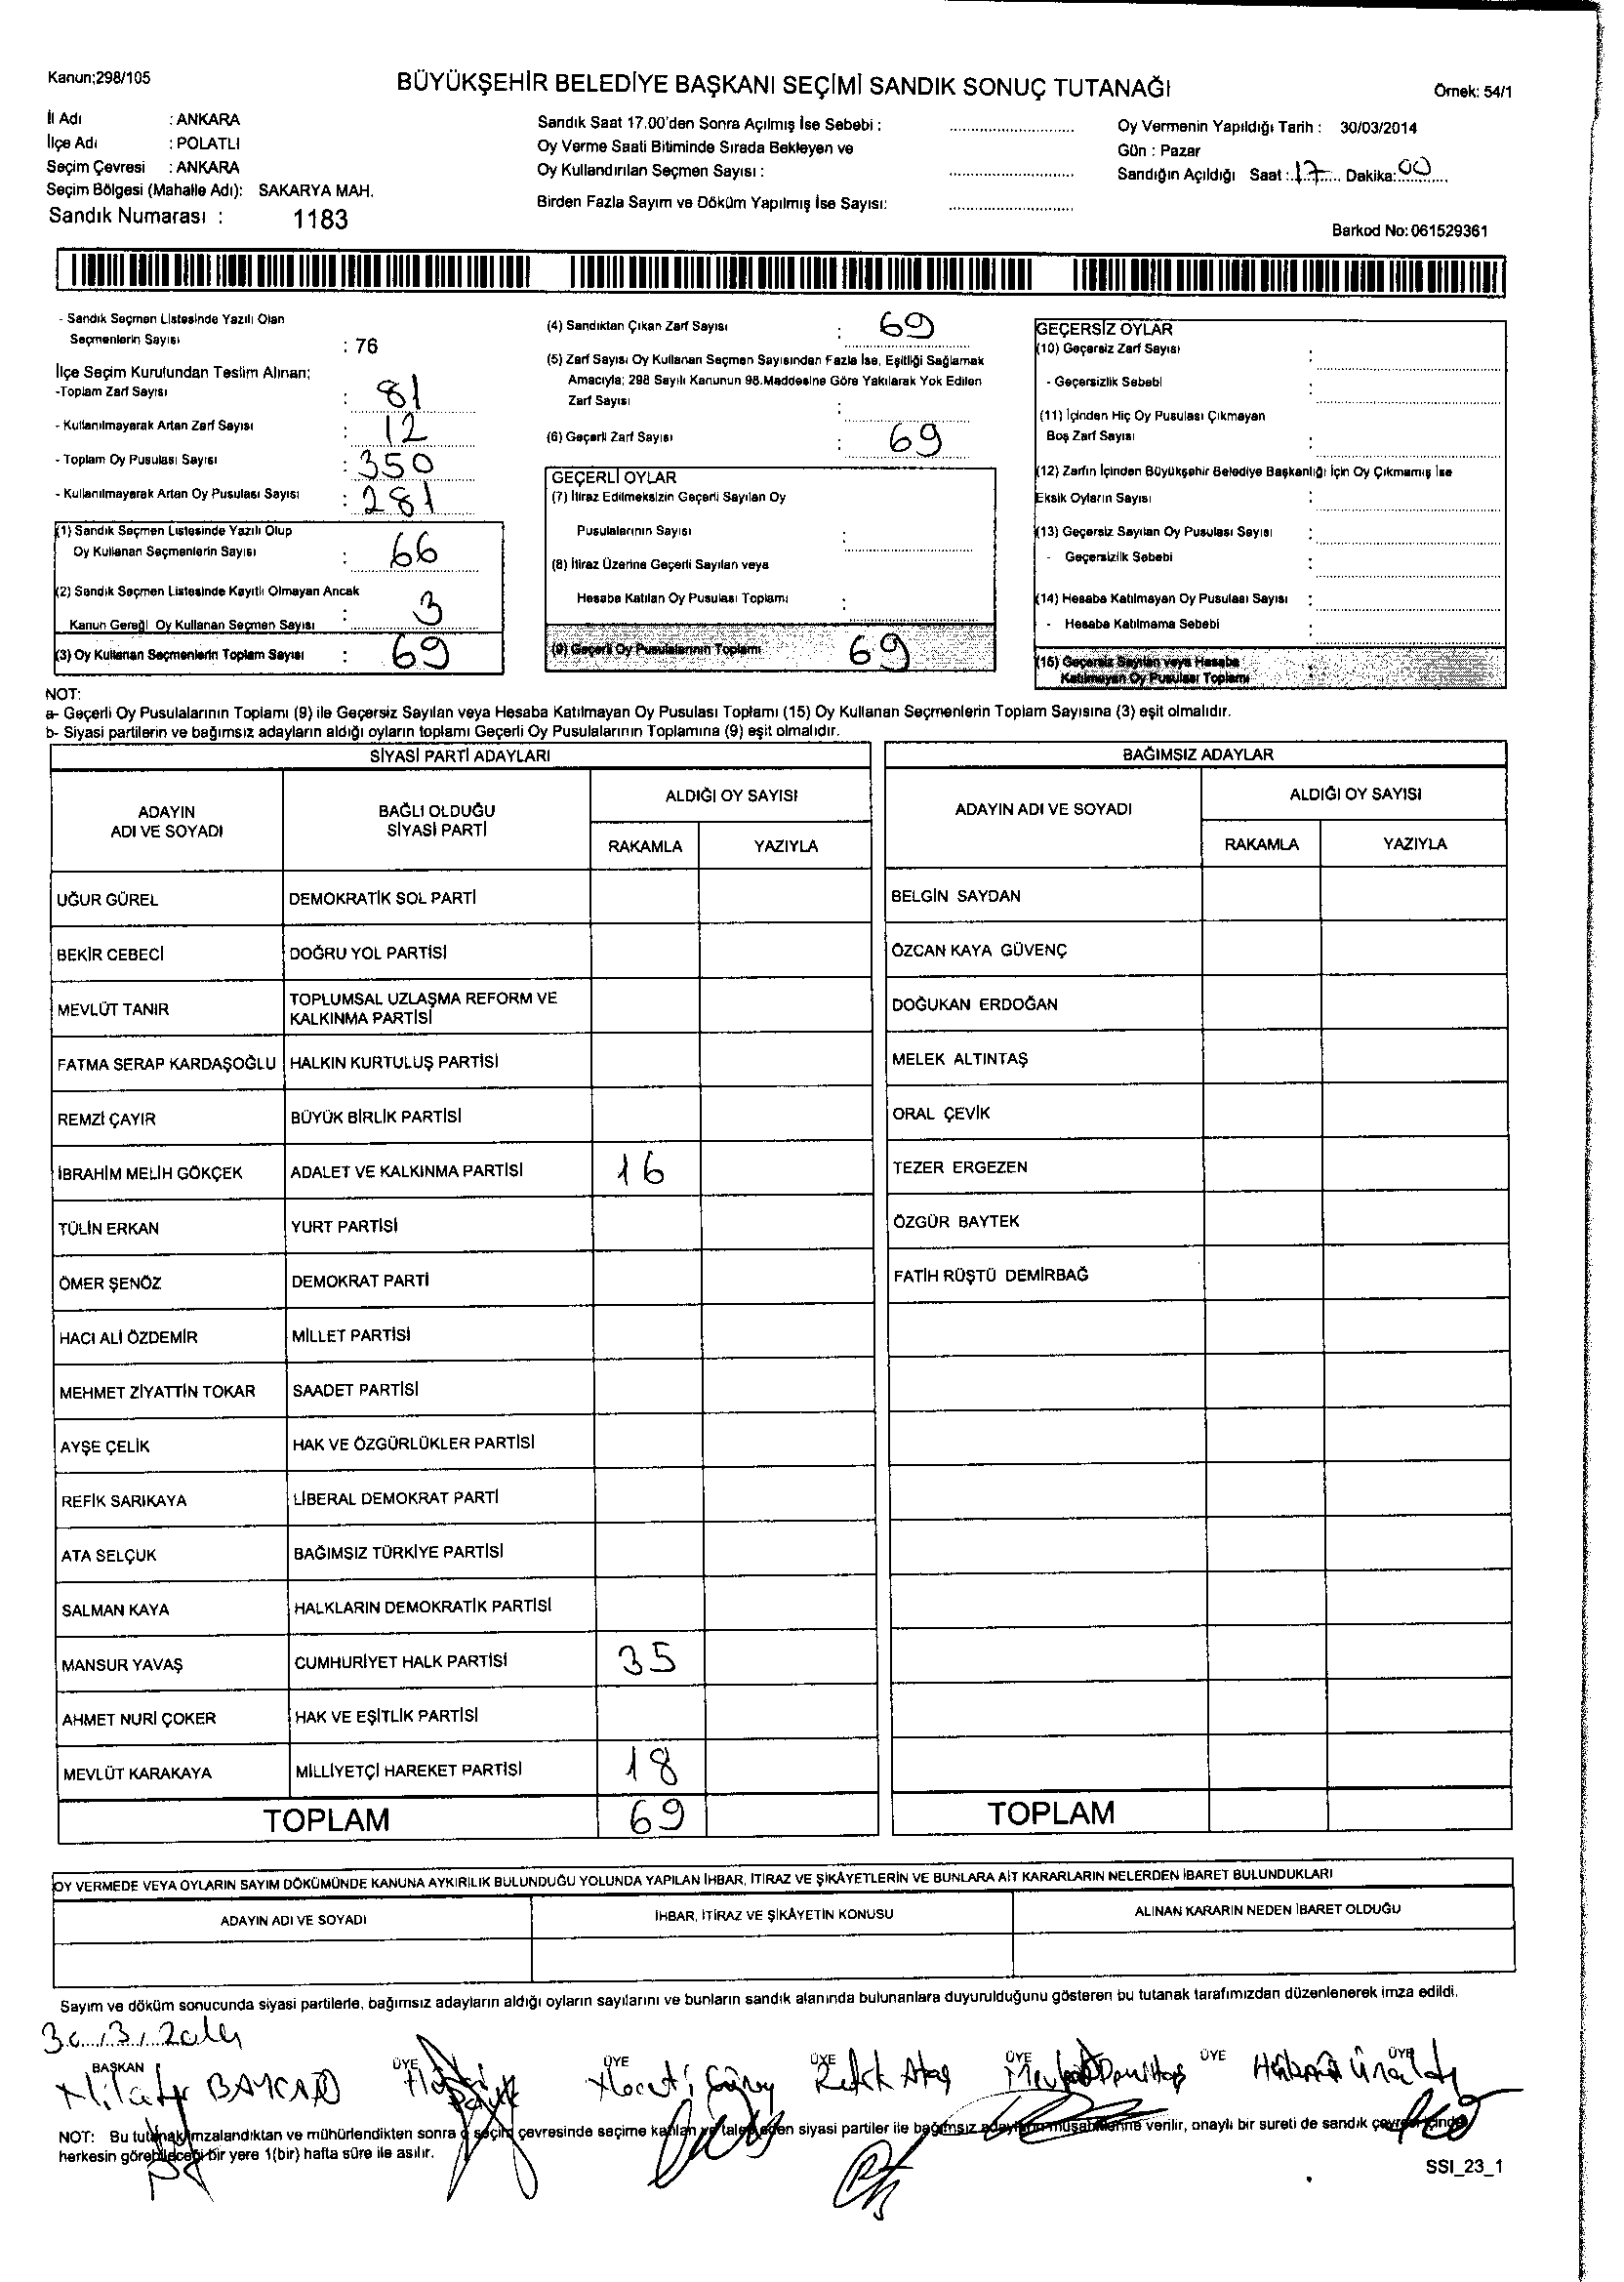 Kanun;298/105
BÜYÜKŞEHİR BELEDİYE BAŞKANI SEÇİMİ SANDIK SONUÇ TUTANAĞI
Örnek: 54/1
İl Adı : ANKARA
İlçe Adı : POLATLI
Seçim Çevresi : ANKARA
Seçim Bölgesi (Mahalle Adı): SAKARYA MAH.
Sandık Numarası : 1183
Sandık Saat 17.00'den Sonra Açılmış İse Sebebi :
Oy Verme Saati Bitiminde Sırada Bekleyen ve
Oy Kullandırılan Seçmen Sayısı :
Birden Fazla Sayım ve Döküm Yapılmış İse Sayısı:
Oy Vermenin Yapıldığı Tarih : 30/03/2014
Gün : Pazar
Sandığın Açıldığı Saat : 17 Dakika: 00
Barkod No: 061529361
- Sandık Seçmen Listesinde Yazılı Olan
Seçmenlerin Sayısı : 76
İlçe Seçim Kurulundan Teslim Alınan;
-Toplam Zarf Sayısı : 81
- Kullanılmayarak Artan Zarf Sayısı : 12
- Toplam Oy Pusulası Sayısı : 350
- Kullanılmayarak Artan Oy Pusulası Sayısı : 281
(1) Sandık Seçmen Listesinde Yazılı Olup
Oy Kullanan Seçmenlerin Sayısı : 66
(2) Sandık Seçmen Listesinde Kayıtlı Olmayan Ancak
Kanun Gereği Oy Kullanan Seçmen Sayısı : 3
(3) Oy Kullanan Seçmenlerin Toplam Sayısı : 69
(4) Sandıktan Çıkan Zarf Sayısı : 69
(5) Zarf Sayısı Oy Kullanan Seçmen Sayısından Fazla İse, Eşitliği Sağlamak
Amacıyla; 298 Sayılı Kanunun 98.Maddesine Göre Yakılarak Yok Edilen
Zarf Sayısı :
(6) Geçerli Zarf Sayısı : 69
GEÇERLİ OYLAR
(7) İtiraz Edilmeksizin Geçerli Sayılan Oy
Pusulalarının Sayısı :
(8) İtiraz Üzerine Geçerli Sayılan veya
Hesaba Katılan Oy Pusulası Toplamı :
(9) Geçerli Oy Pusulalarının Toplamı 69
GEÇERSİZ OYLAR
(10) Geçersiz Zarf Sayısı :
- Geçersizlik Sebebi :
(11) İçinden Hiç Oy Pusulası Çıkmayan
Boş Zarf Sayısı :
(12) Zarfın İçinden Büyükşehir Belediye Başkanlığı İçin Oy Çıkmamış İse
Eksik Oyların Sayısı :
(13) Geçersiz Sayılan Oy Pusulası Sayısı :
- Geçersizlik Sebebi :
(14) Hesaba Katılmayan Oy Pusulası Sayısı :
- Hesaba Katılmama Sebebi :
(15) Geçersiz Sayılan veya Hesaba
Katılmayan Oy Pusulası Toplamı :
NOT:
a- Geçerli Oy Pusulalarının Toplamı (9) ile Geçersiz Sayılan veya Hesaba Katılmayan Oy Pusulası Toplamı (15) Oy Kullanan Seçmenlerin Toplam Sayısına (3) eşit olmalıdır.
b- Siyasi partilerin ve bağımsız adayların aldığı oyların toplamı Geçerli Oy Pusulalarının Toplamına (9) eşit olmalıdır.
SİYASİ PARTİ ADAYLARI
ADAYIN ADI VE SOYADI
BAĞLI OLDUĞU SİYASİ PARTİ
ALDIĞI OY SAYISI
RAKAMLA YAZIYLA
UĞUR GÜREL DEMOKRATİK SOL PARTİ
BEKİR CEBECİ DOĞRU YOL PARTİSİ
MEVLÜT TANIR TOPLUMSAL UZLAŞMA REFORM VE
KALKINMA PARTİSİ
FATMA SERAP KARDAŞOĞLU HALKIN KURTULUŞ PARTİSİ
REMZİ ÇAYIR BÜYÜK BİRLİK PARTİSİ
İBRAHİM MELİH GÖKÇEK ADALET VE KALKINMA PARTİSİ 16
TÜLİN ERKAN YURT PARTİSİ
ÖMER ŞENÖZ DEMOKRAT PARTİ
HACI ALİ ÖZDEMİR MİLLET PARTİSİ
MEHMET ZİYATTİN TOKAR SAADET PARTİSİ
AYŞE ÇELİK HAK VE ÖZGÜRLÜKLER PARTİSİ
REFİK SARIKAYA LİBERAL DEMOKRAT PARTİ
ATA SELÇUK BAĞIMSIZ TÜRKİYE PARTİSİ
SALMAN KAYA HALKLARIN DEMOKRATİK PARTİSİ
MANSUR YAVAŞ CUMHURİYET HALK PARTİSİ 35
AHMET NURİ ÇOKER HAK VE EŞİTLİK PARTİSİ
MEVLÜT KARAKAYA MİLLİYETÇİ HAREKET PARTİSİ 18
TOPLAM 69
BAĞIMSIZ ADAYLAR
ADAYIN ADI VE SOYADI
ALDIĞI OY SAYISI
RAKAMLA YAZIYLA
BELGİN SAYDAN
ÖZCAN KAYA GÜVENÇ
DOĞUKAN ERDOĞAN
MELEK ALTINTAŞ
ORAL ÇEVİK
TEZER ERGEZEN
ÖZGÜR BAYTEK
FATİH RÜŞTÜ DEMİRBAĞ
TOPLAM
OY VERMEDE VEYA OYLARIN SAYIM DÖKÜMÜNDE KANUNA AYKIRILIK BULUNDUĞU YOLUNDA YAPILAN İHBAR, İTİRAZ VE ŞİKÂYETLERİN VE BUNLARA AİT KARARLARIN NELERDEN İBARET BULUNDUKLARI
ADAYIN ADI VE SOYADI İHBAR, İTİRAZ VE ŞİKÂYETİN KONUSU ALINAN KARARIN NEDEN İBARET OLDUĞU
Sayım ve döküm sonucunda siyasi partilerle, bağımsız adayların aldığı oyların sayılarını ve bunların sandık alanında bulunanlara duyurulduğunu gösteren bu tutanak tarafımızdan düzenlenerek imza edildi.
30/3/2014
BAŞKAN ÜYE ÜYE ÜYE ÜYE ÜYE ÜYE
NOT: Bu tutanak imzalandıktan ve mühürlendikten sonra o seçim çevresinde seçime katılan ve talep eden siyasi partiler ile bağımsız adayların müşahitlerine verilir, onaylı bir sureti de sandık çevresi içinde
herkesin görebileceği bir yere 1(bir) hafta süre ile asılır.
SSI_23_1